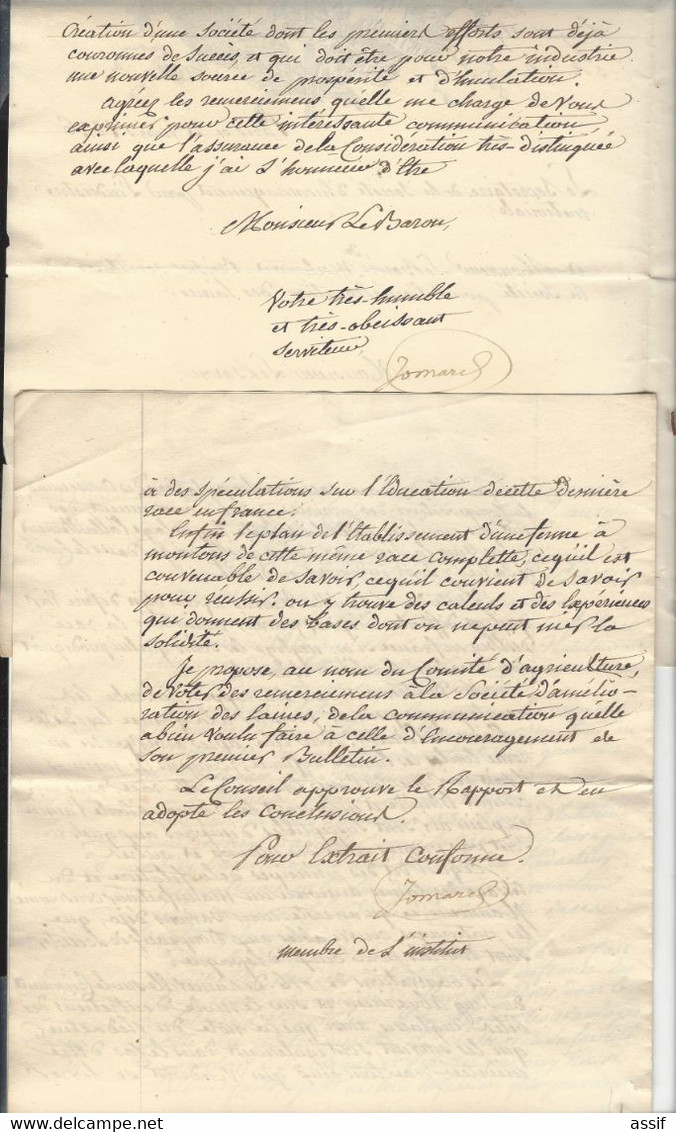 Création d'une Société dont les premiers efforts sont déjà
couronnés de Succès, et qui doit être pour notre industrie
une nouvelle source de prospérité et d'Emulation.
agréez les remerciemens qu'elle me charge de Vous
exprimer pour cette intéressante communication,
ainsi que l'assurance de la Considération très-distinguée
avec laquelle j'ai l'honneur d'être
Monsieur Le Baron,
Votre très-humble
et très-obéissant
Serviteur
Jomard
à des spéculations sur l'Education de cette dernière
race en france.
Enfin le plan de l'Etablissement d'une ferme à
moutons de cette même race complette, ce qu'il est
convenable de savoir, ce qu'il convient de savoir
pour réussir. on y trouve des calculs et des Expériences
qui donnent des bases dont on ne peut nier la
solidité.
Je propose, au nom du Comité d'agriculture,
de voter des remerciemens à la Société d'amélio-
ration des laines, de la communication qu'elle
a bien voulu faire à celle d'Encouragement de
son premier Bulletin.
Le Conseil approuve le Rapport et en
adopte les conclusions.
Pour Extrait Conforme.
Jomard
membre de l'institut
assif